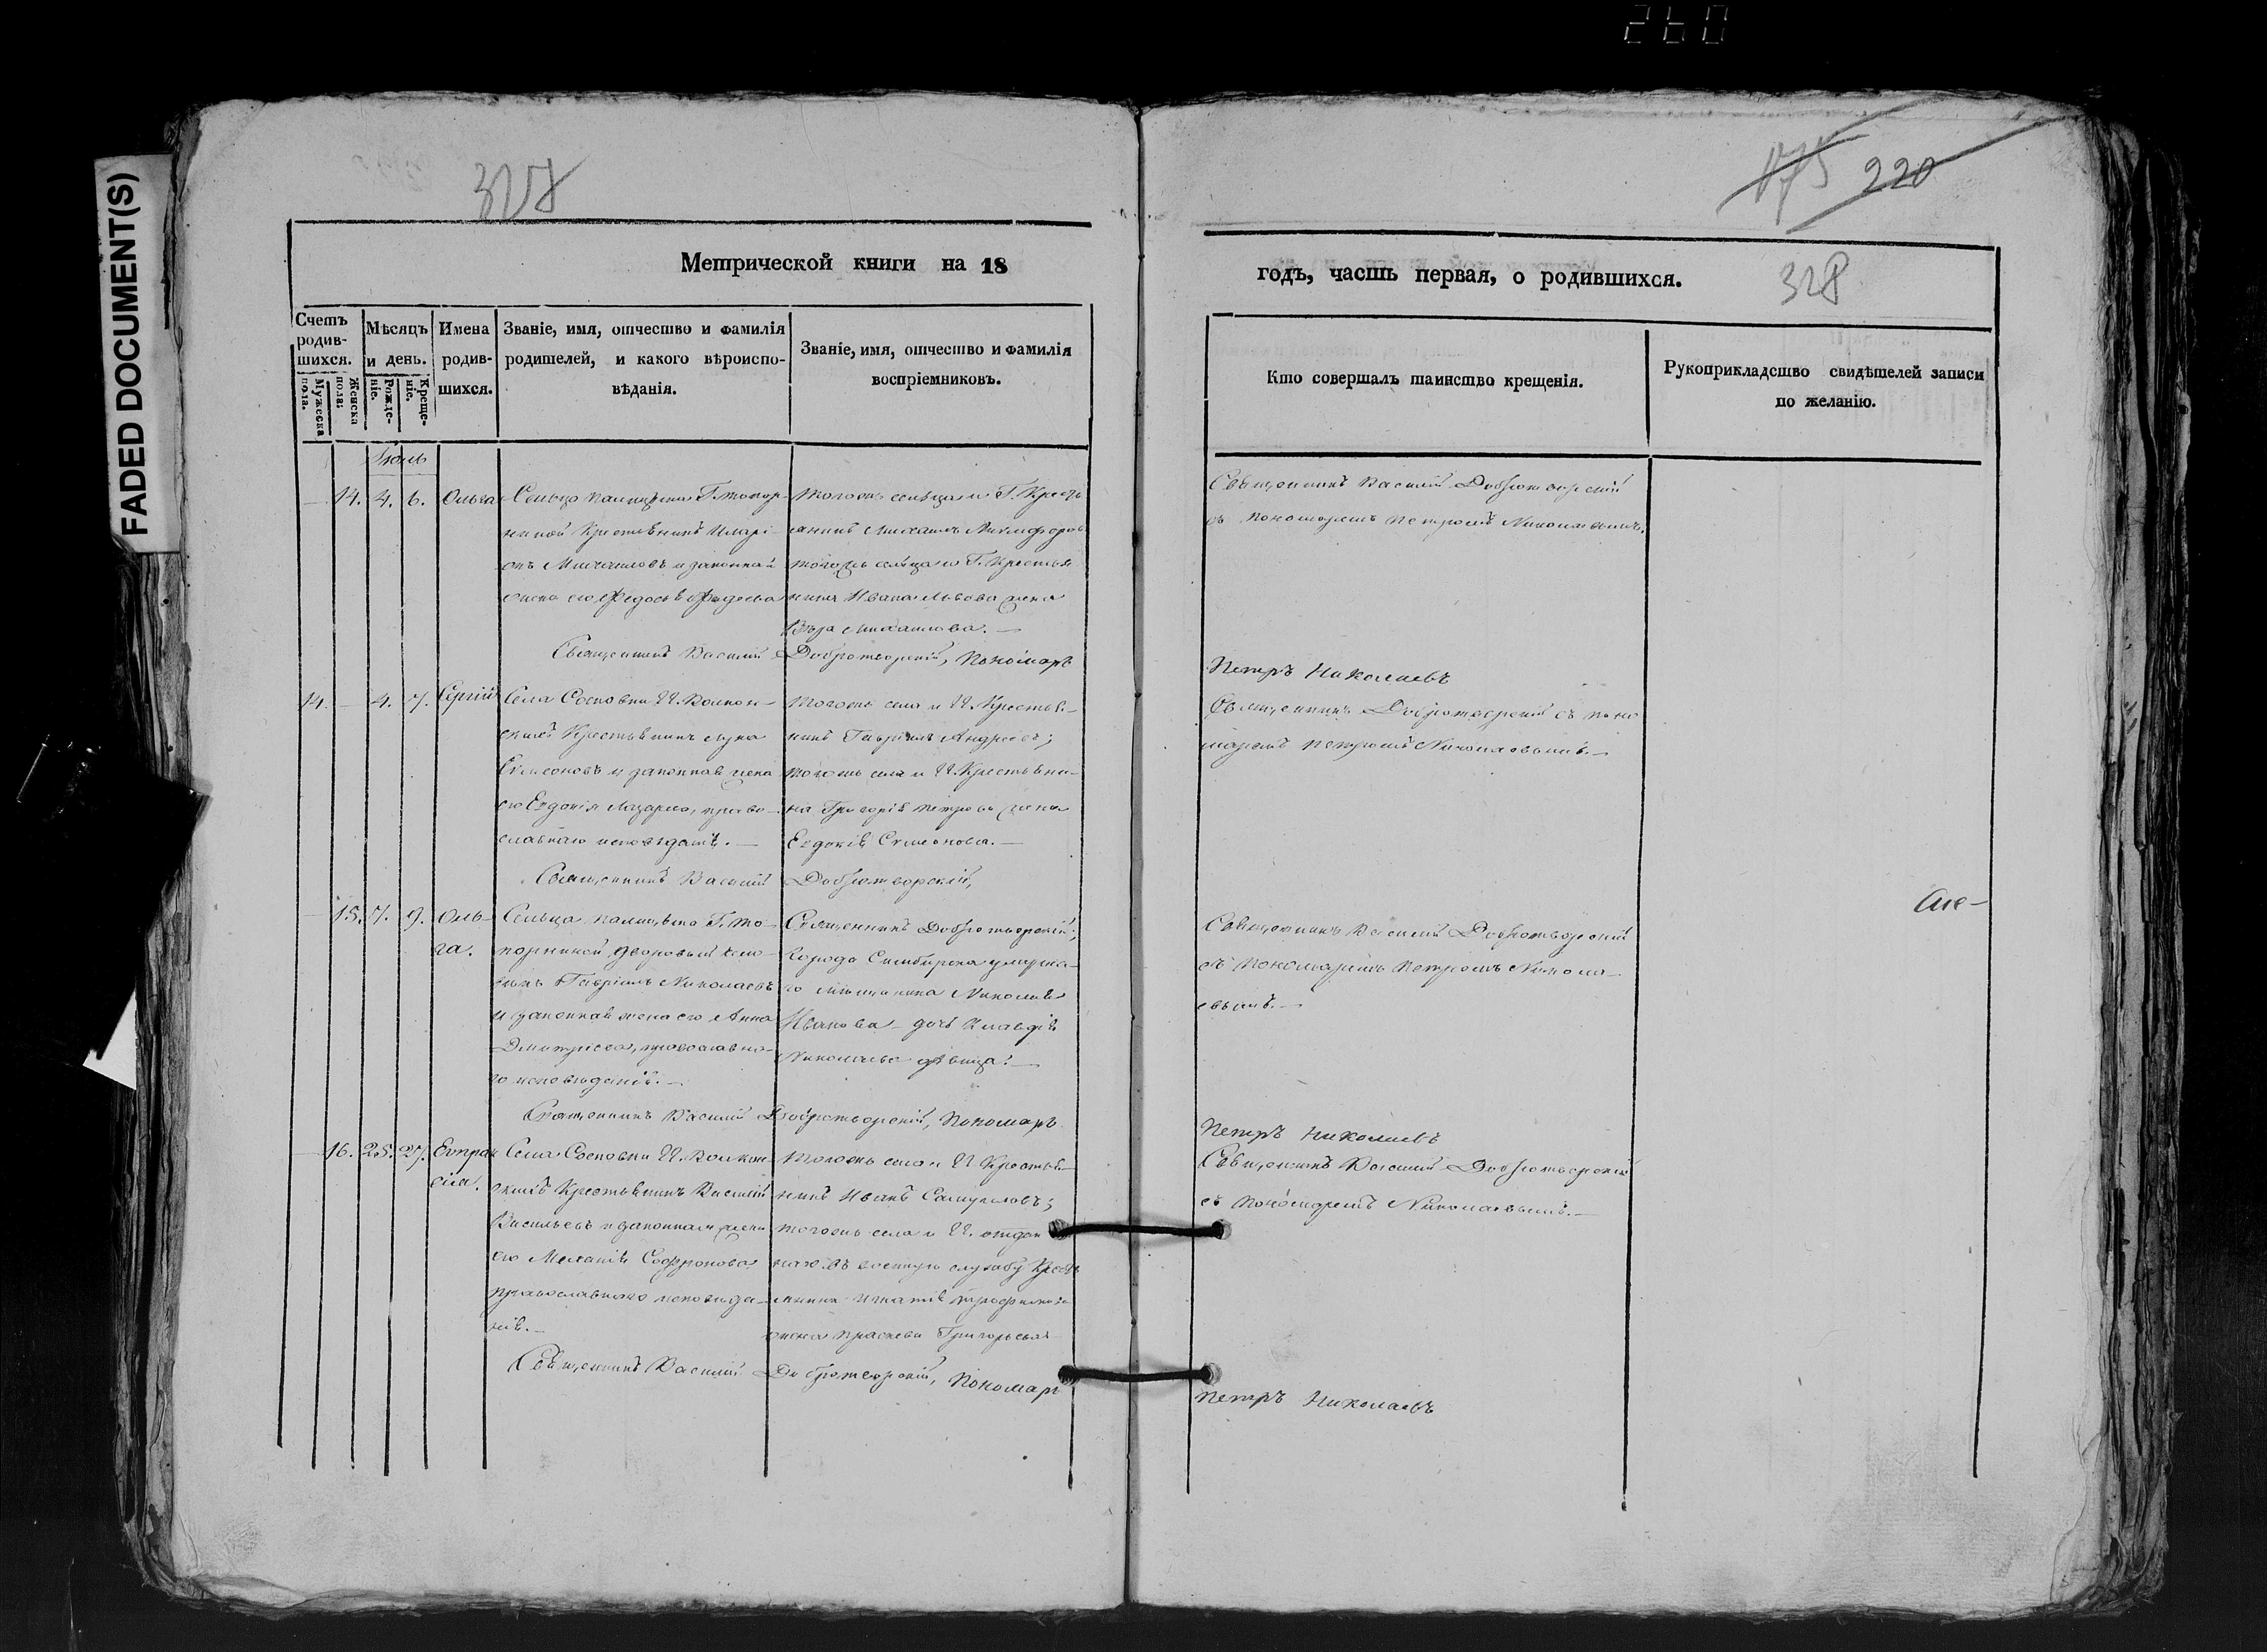 260
FADED DOCUMENT(S)
327
175 220
Метрической книги на 18
годъ, часть первая, о родившихся.
328
Счетъ родив-шихся.
Мужеска пола.
Женска пола.
Мѣсяцъ и день.
Рожде-ніе.
Креще-ніе.
Имена родив-шихся.
Званіе, имя, отчество и фамилія
родителей, и какого вѣроиспо-
вѣданія.
Званіе, имя, отчество и фамилія
воспріемниковъ.
Кто совершалъ таинство крещенія.
Рукоприкладство свидѣтелей записи
по желанію.
Іюль
14. 4. 6. Ольга
Сельца Г. Топор-
ниной Крестьянинъ Иларі-
онъ Михайловъ и законная
жена его Федосья Фадеева
Тогожъ сельца и Г. Кресть
янинъ Михаилъ Никифоровъ
тогожъ сельца и Г. Крестья
нина Ивана Львова жена
Вѣра Михайлова. —
Священникъ Василий Добротворскій
съ пономаремъ Петромъ Николаевымъ.
Священникъ Василий Добротворскій, Пономарь
Петръ Николаевъ
14. — 4. 7. Сергій
Села Сосновки
Крестьянинъ Лука
Симеоновъ и законная жена
его Евдокія Лазарева, право-
славнаго исповѣданія. —
Тогожъ села и Крестья-
нинъ Гавріилъ Андреевъ;
тогожъ села и Крестьяни-
на Григорія Петрова жена
Евдокія Симеонова. —
Священникъ Добротворскій съ поно
маремъ Петромъ Николаевымъ. —
Священникъ Василий Добротворскій,
15. 7. 9. Оль-
га.
Сельца Г. То-
порниной дворовый чело-
вѣкъ Гавріилъ Николаевъ
и законная жена его Анна
Дмитріева, православна-
го исповѣданія. —
Священникъ Добротворскій;
Города Симбирска умерша-
го мѣщанина Николая
Иванова дочь Клавдія
Николаева дѣвица. —
Священникъ Василий Добротворскій
съ Пономаремъ Петромъ Никола-
евымъ. —
Священникъ Василий Добротворскій, Пономарь
Петръ Николаевъ
16. 25. 27. Евпрак
сія.
Села Сосновки
Крестьянинъ Василій
Васильевъ и законная жена
его Меланія Софронова
православнаго исповѣда-
нія. —
Тогожъ села и Крестья-
нинъ Иванъ Самуиловъ;
тогожъ села и отдан
наго въ военную службу Кресть
янина Игнатія Трофимова
жена Праскева Григорьева
Священникъ Василий Добротворскій
съ Пономаремъ Николаевымъ. —
Священникъ Василий Добротворскій, Пономарь
Петръ Николаевъ